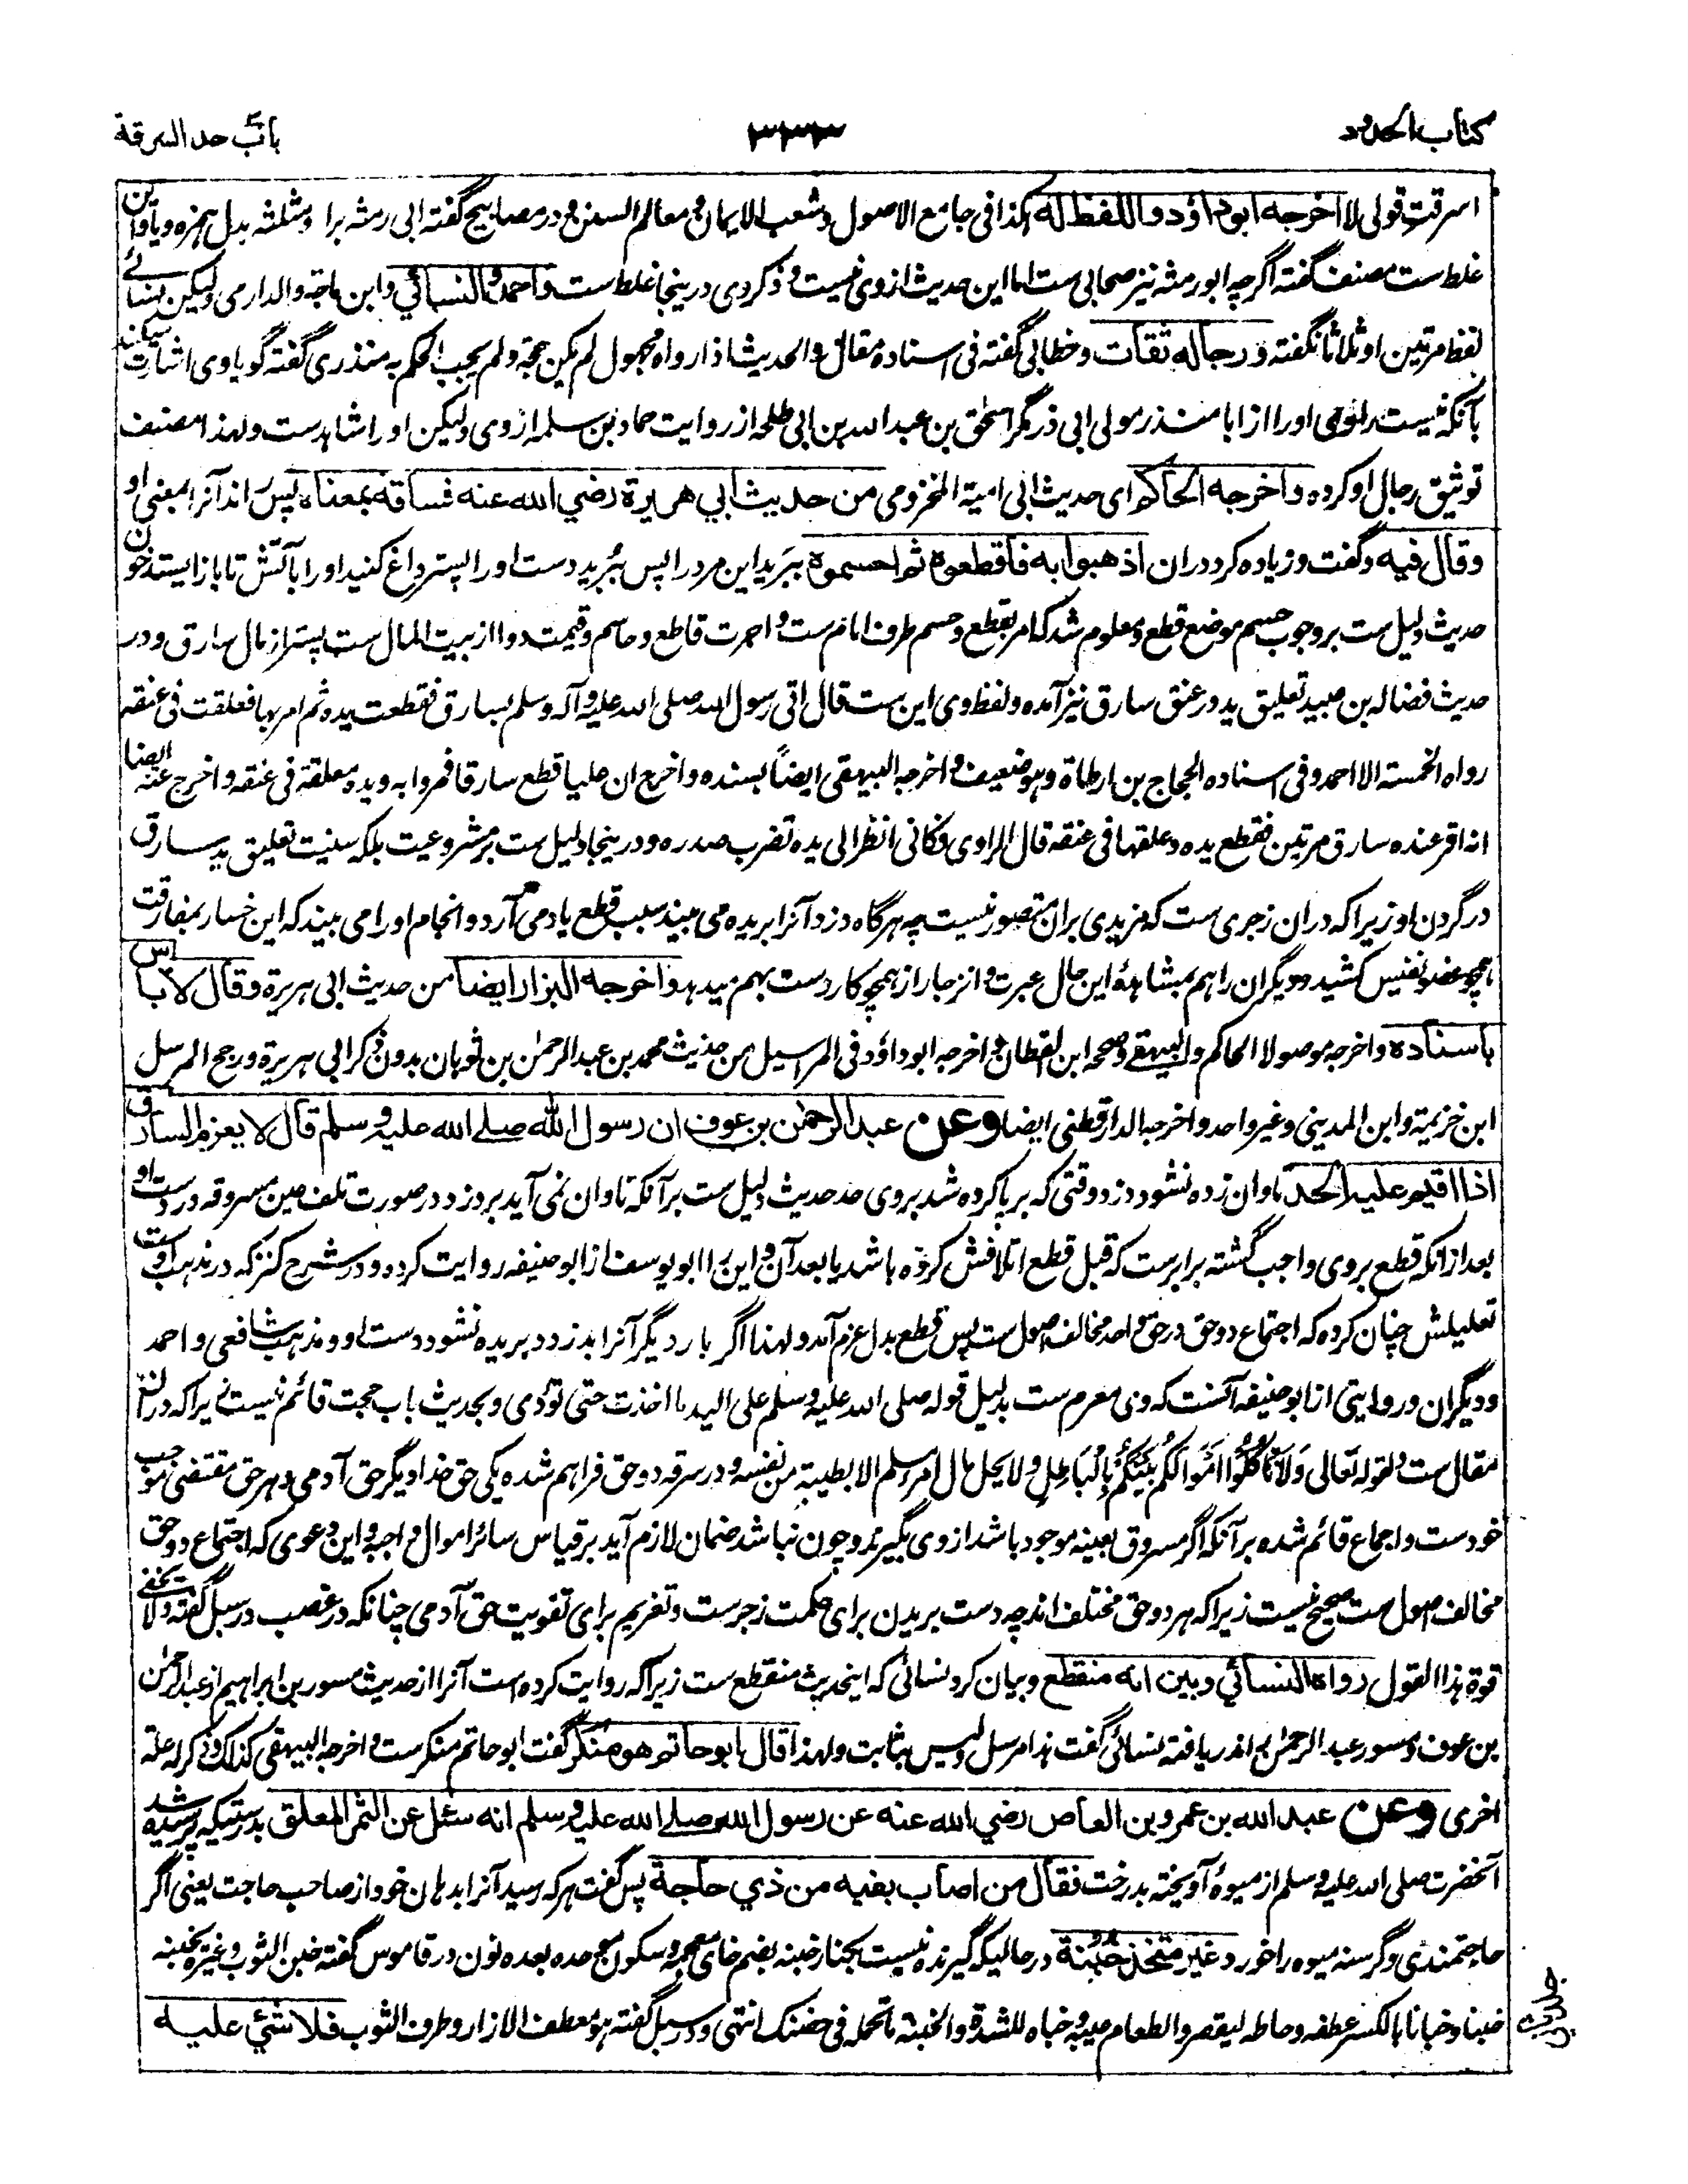 کتاب الحدود
۳۳۳
باب حد السرقة
اسرقت قولی لا اخرجه ابوداؤد واللفظ له کذا فی جامع الاصول وشعب الایمان ومعالم السنن ودر مصابیح گفته ابی رمثه برا ومثلثه بدل همزه ویا واین
غلط ست مصنف گفته اگرچه ابو رمثه نیز صحابی ست اما این حدیث از وی نیست وذکر وی درینجا غلط ست واحمد والنسائي وابن ماجة والدارمی ولیکن نسائے
لفظ مرتین او ثلاثا نگفته ورجاله ثقات وخطابی گفته فی اسناده مقال والحدیث اذا رواه مجهول لم یکن حجة ولم یجب الحکم به منذری گفته گویا وی اشارت میکند
بآنکه نیست راوی اورا از ابا منذر مولی ابی ذر مگر اسحٰق بن عبد الله بن ابی طلحه از روایت حماد بن سلمه از وی ولیکن اورا شاهدست ولهذا مصنف
توثیق رجال او کرده واخرجه الحاکم ای حدیث ابی امیة المخزومی من حدیث أبي هريرة رضي الله عنه فساقه بمعناه پس راند آنرا بمعنی او
وقال فيه وگفت وزیاده کرد دران اذهبوا به فاقطعوه ثم احسموه ببرید این مرد را پس ببرید دست اورا پستر داغ کنید اورا بآتش تا باز ایستد خون
حدیث دلیل ست بر وجوب حسم موضع قطع ومعلوم شد که امر بقطع وحسم طرف امام ست واجرت قاطع وحاسم وقیمت دوا از بیت المال ست پستر از مال سارق ودر
حدیث فضاله بن عبید تعلیق ید در عنق سارق نیز آمده ولفظ وی این ست قال اتی رسول الله صلی الله علیه وآله وسلم بسارق فقطعت یده ثم امر بها فعلقت فی عنقه
رواه الخمسة الا احمد وفی اسناده الحجاج بن ارطاة وهو ضعیف واخرجه البیهقی ایضاً بسنده واخرج ان علیا قطع سارقا فمروا به ویده معلقة فی عنقه واخرج عنه ایضا
انه اقر عنده سارق مرتین فقطع یده وعلقها فی عنقه قال الراوی فکانی انظر الی یده تضرب صدره ودرینجا دلیل ست بر مشروعیت بلکه سنیت تعلیق ید سارق
در گردن او زیرا که دران زجری ست که مزیدی بران متصور نیست چه هرگاه دزد آنرا بریده می بیند سبب قطع یاد می آرد وانجام اورا می بیند که این خسار بمفارقت
همچو عضو نفیس کشید ودیگران را هم بمشاهدهٔ این حال عبرت وانزجار از همچو کار دست بهم میدهد واخرجه البزار ایضا من حدیث ابی هریرة وقال لا بأس
باسناده واخرجه موصولا الحاکم والبیهقے وصححه ابن القطان واخرجه ابوداؤد فی المراسیل من حدیث محمد بن عبد الرحمٰن بن ثوبان بدون ذکر ابی هریرة ورجح المرسل
ابن خزیمة وابن المدینی وغیر واحد واخرجه الدارقطنی ایضا وعن عبد الرحمٰن بن عوف ان رسول الله صلے الله علیه وسلم قال لا یغرم السارق
اذا اقیم علیه الحد تاوان زده نشود دزد وقتی که برپا کرده شد بروی حد حدیث دلیل ست برآنکه تاوان نمی آید بر دزد در صورت تلف عین مسروقه در دست او
بعد ازانکه قطع بروی واجب گشته برابرست که قبل قطع اتلافش کرده باشد یا بعد آن واین را ابو یوسف از ابو حنیفه روایت کرده ودر شرح کنز که در مذهب اوست
تعلیلش چنان کرده که اجتماع دو حق در حق واحد مخالف اصول ست پس قطع بدل غرم آمد ولهذا اگر بار دیگر آنرا بدزدد بریده نشود دست او ومذهب شافعی واحمد
ودیگران وروایتی از ابو حنیفه آنست که وی مغرم ست بدلیل قوله صلی الله علیه وسلم علی الید ما اخذت حتی تؤدی وبحدیث باب حجت قائم نیست زیرا که دران
مقال ست ولقوله تعالی وَلَا تَأْكُلُوا أَمْوَالَكُمْ بَيْنَكُمْ بِالْبَاطِلِ ولا یحل مال امرء مسلم الا بطیبة من نفسه ودر سرقه دو حق فراهم شده یکی حق خدا دیگر حق آدمی وهر حق مقتضی موجب
خودست واجماع قائم شده برآنکه اگر مسروق بعینه موجود باشد از وی بگیرند وچون نباشد ضمان لازم آید بر قیاس سائر اموال واجبه واین دعوی که اجتماع دو حق
مخالف اصول ست صحیح نیست زیرا که هر دو حق مختلف اند چه دست بریدن برای حکمت زجرست وتغریم برای تفویت حق آدمی چنانکه در غصب در سبل گفته ولا یخفے
قوة هذا القول رواه النسائي وبین انه منقطع وبیان کرد نسائی که اینحدیث منقطع ست زیراکه روایت کرده است آنرا از حدیث مسور بن ابراهیم از عبدالرحمٰن
بن عوف ومسور عبد الرحمٰن را درنیافته نسائی گفت هذا مرسل ولیس بثابت ولهذا قال ابوحاتم هو منکر گفت ابو حاتم منکرست واخرجه البیهقی کذلک وذکر له علة
اخری وعن عبد الله بن عمرو بن العاص رضي الله عنه عن رسول الله صلے الله علیه وسلم انه سئل عن الثمر المعلق بدرستیکه پرسیده شد
آنحضرت صلی الله علیه وسلم از میوهٔ آویخته بدرخت فقال من اصاب بفیه من ذي حاجة پس گفت هر که رسید آنرا بدهان خود از صاحب حاجت یعنی اگر
حاجتمندی وگرسنه میوه را خورد غیر متخذ خبنة درحالیکه گیرنده نیست بکنار خبنه بضم خای معجمه وسکون موحده بعده نون در قاموس گفته خبن الثوب وغیره یخبنه
خبنا وخبانا بالکسر عطفه وخاطه لیقصر والطعام غیبه وخباه للشدة والخبنة ما تحمله فی حضنک انتهی ودر سبل گفته هو معطف الازار وطرف الثوب فلا شئ علیه